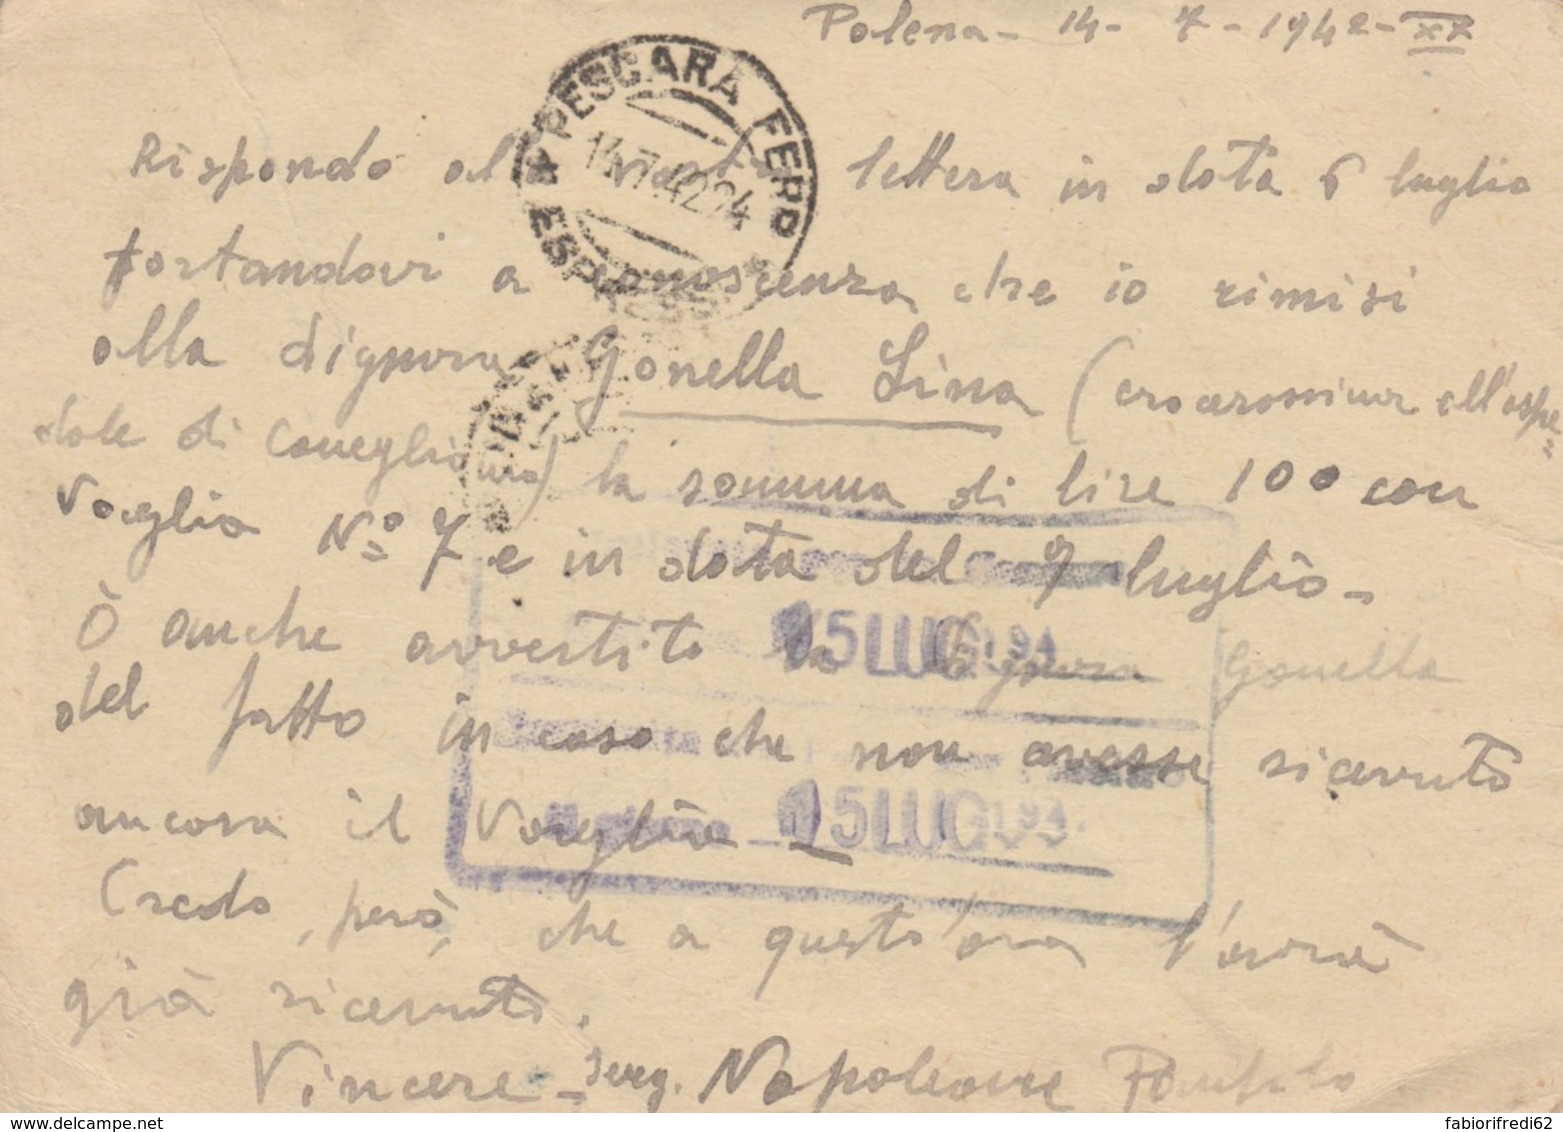 Polena - 14 - 7 - 1942 - XX
PESCARA FERR
ESPRESSI
14.7.42.24
Rispondo alla vostra lettera in data 6 luglio
portandovi a conoscenza che io rimisi
alla Signora Gonella Lina (crocerossina all'ospe=
dale di Conegliano) la somma di lire 100 con
Vaglia Nº 7 e in data del 7 luglio -
Ò anche avvertito la Signora Gonella
del fatto in caso che non avesse ricevuto
ancora il Vaglia -
15 LUG. 194
15 LUG. 194
Credo, però, che a quest'ora l'avrà
già ricevuto.
Vincere - Serg. Napoleone Pompilo
delcampe.net
fabiorifredi62